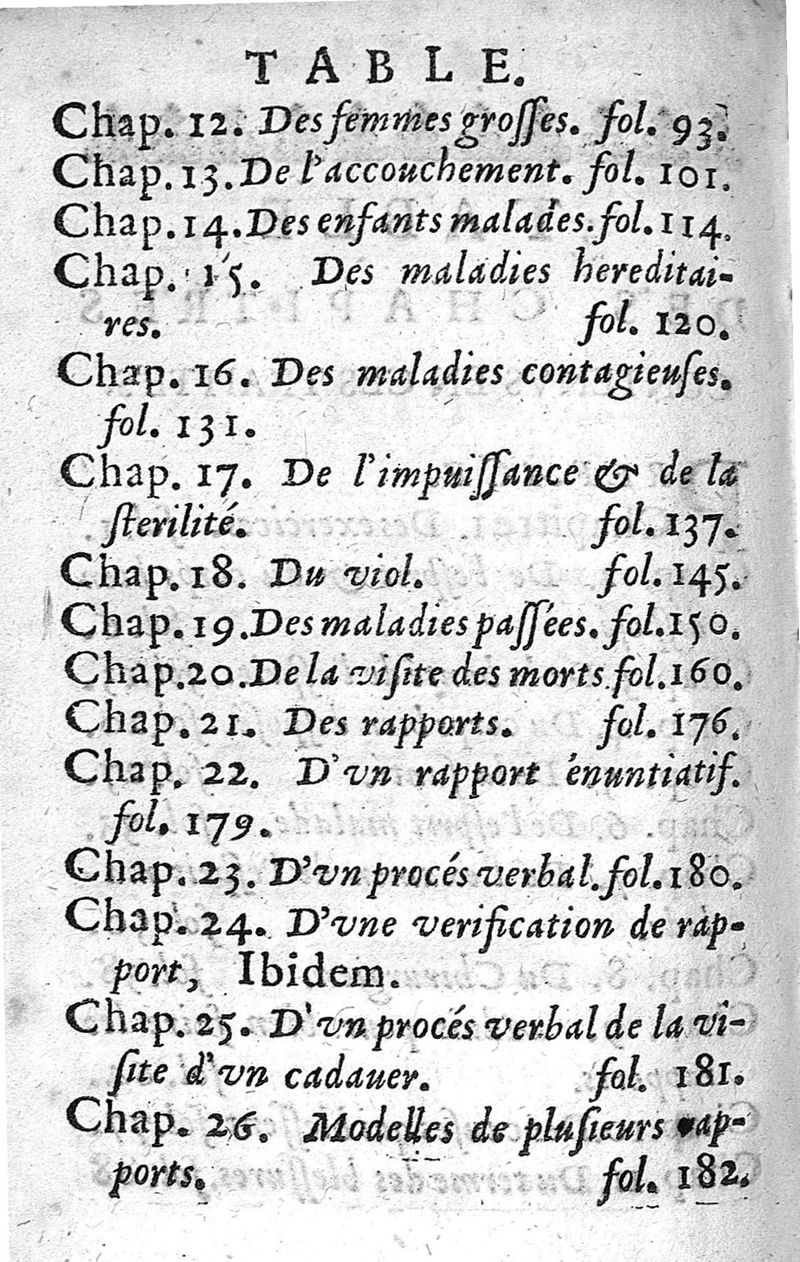 TABLE.
Chap. 12. Des femmes groſſes. fol. 93.
Chap. 13. De l'accouchement. fol. 101.
Chap. 14. Des enfants malades. fol. 114.
Chap. 15. Des maladies hereditai-
res. fol. 120.
Chap. 16. Des maladies contagieuſes.
fol. 131.
Chap. 17. De l'impuiſſance & de la
ſterilité. fol. 137.
Chap. 18. Du viol. fol. 145.
Chap. 19. Des maladies paſſées. fol. 150.
Chap. 20. De la viſite des morts fol. 160.
Chap. 21. Des rapports. fol. 176.
Chap. 22. D'vn rapport énuntiatif.
fol. 179.
Chap. 23. D'vn procés verbal. fol. 180.
Chap. 24. D'vne verification de rap-
port, Ibidem.
Chap. 25. D'vn procés verbal de la vi-
ſite d'vn cadauer. fol. 181.
Chap. 26. Modelles de pluſieurs rap-
ports. fol. 182.